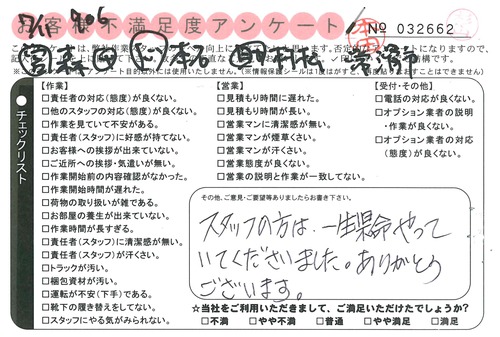 7/15 906
お客様不満足度アンケート
No 032662
チェックリスト
【作業】
□責任者の対応(態度)が良くない。
□他のスタッフの対応(態度)が良くない。
□作業を見ていて不安がある。
□責任者(スタッフ)に好感が持てない。
□お客様への挨拶が出来ていない。
□ご近所への挨拶・気遣いが無い。
□作業開始前の内容確認がなかった。
□作業開始時間が遅れた。
□荷物の取り扱いが雑である。
□お部屋の養生が出来ていない。
□作業時間が長すぎる。
□責任者(スタッフ)に清潔感が無い。
□責任者(スタッフ)が汗くさい。
□トラックが汚い。
□梱包資材が汚い。
□運転が不安(下手)である。
□靴下の履き替えをしてない。
□スタッフにやる気がみられない。
【営業】
□見積もり時間に遅れた。
□見積もり時間が長い。
□営業マンに清潔感が無い。
□営業マンが煙草くさい。
□営業マンが汗くさい。
□営業態度が良くない。
□営業の説明と作業が一致してない。
【受付・その他】
□電話の対応が良くない。
□オプション業者の説明
・作業が良くない。
□オプション業者の対応
(態度)が良くない。
その他、ご意見・ご要望等ありましたらお書き下さい。
スタッフの方は、一生懸命やって
いてくださいました。ありがとう
ございます。
☆当社をご利用いただきまして、ご満足いただけたでしょうか?
□不満 □やや不満 □普通 □やや満足 □満足